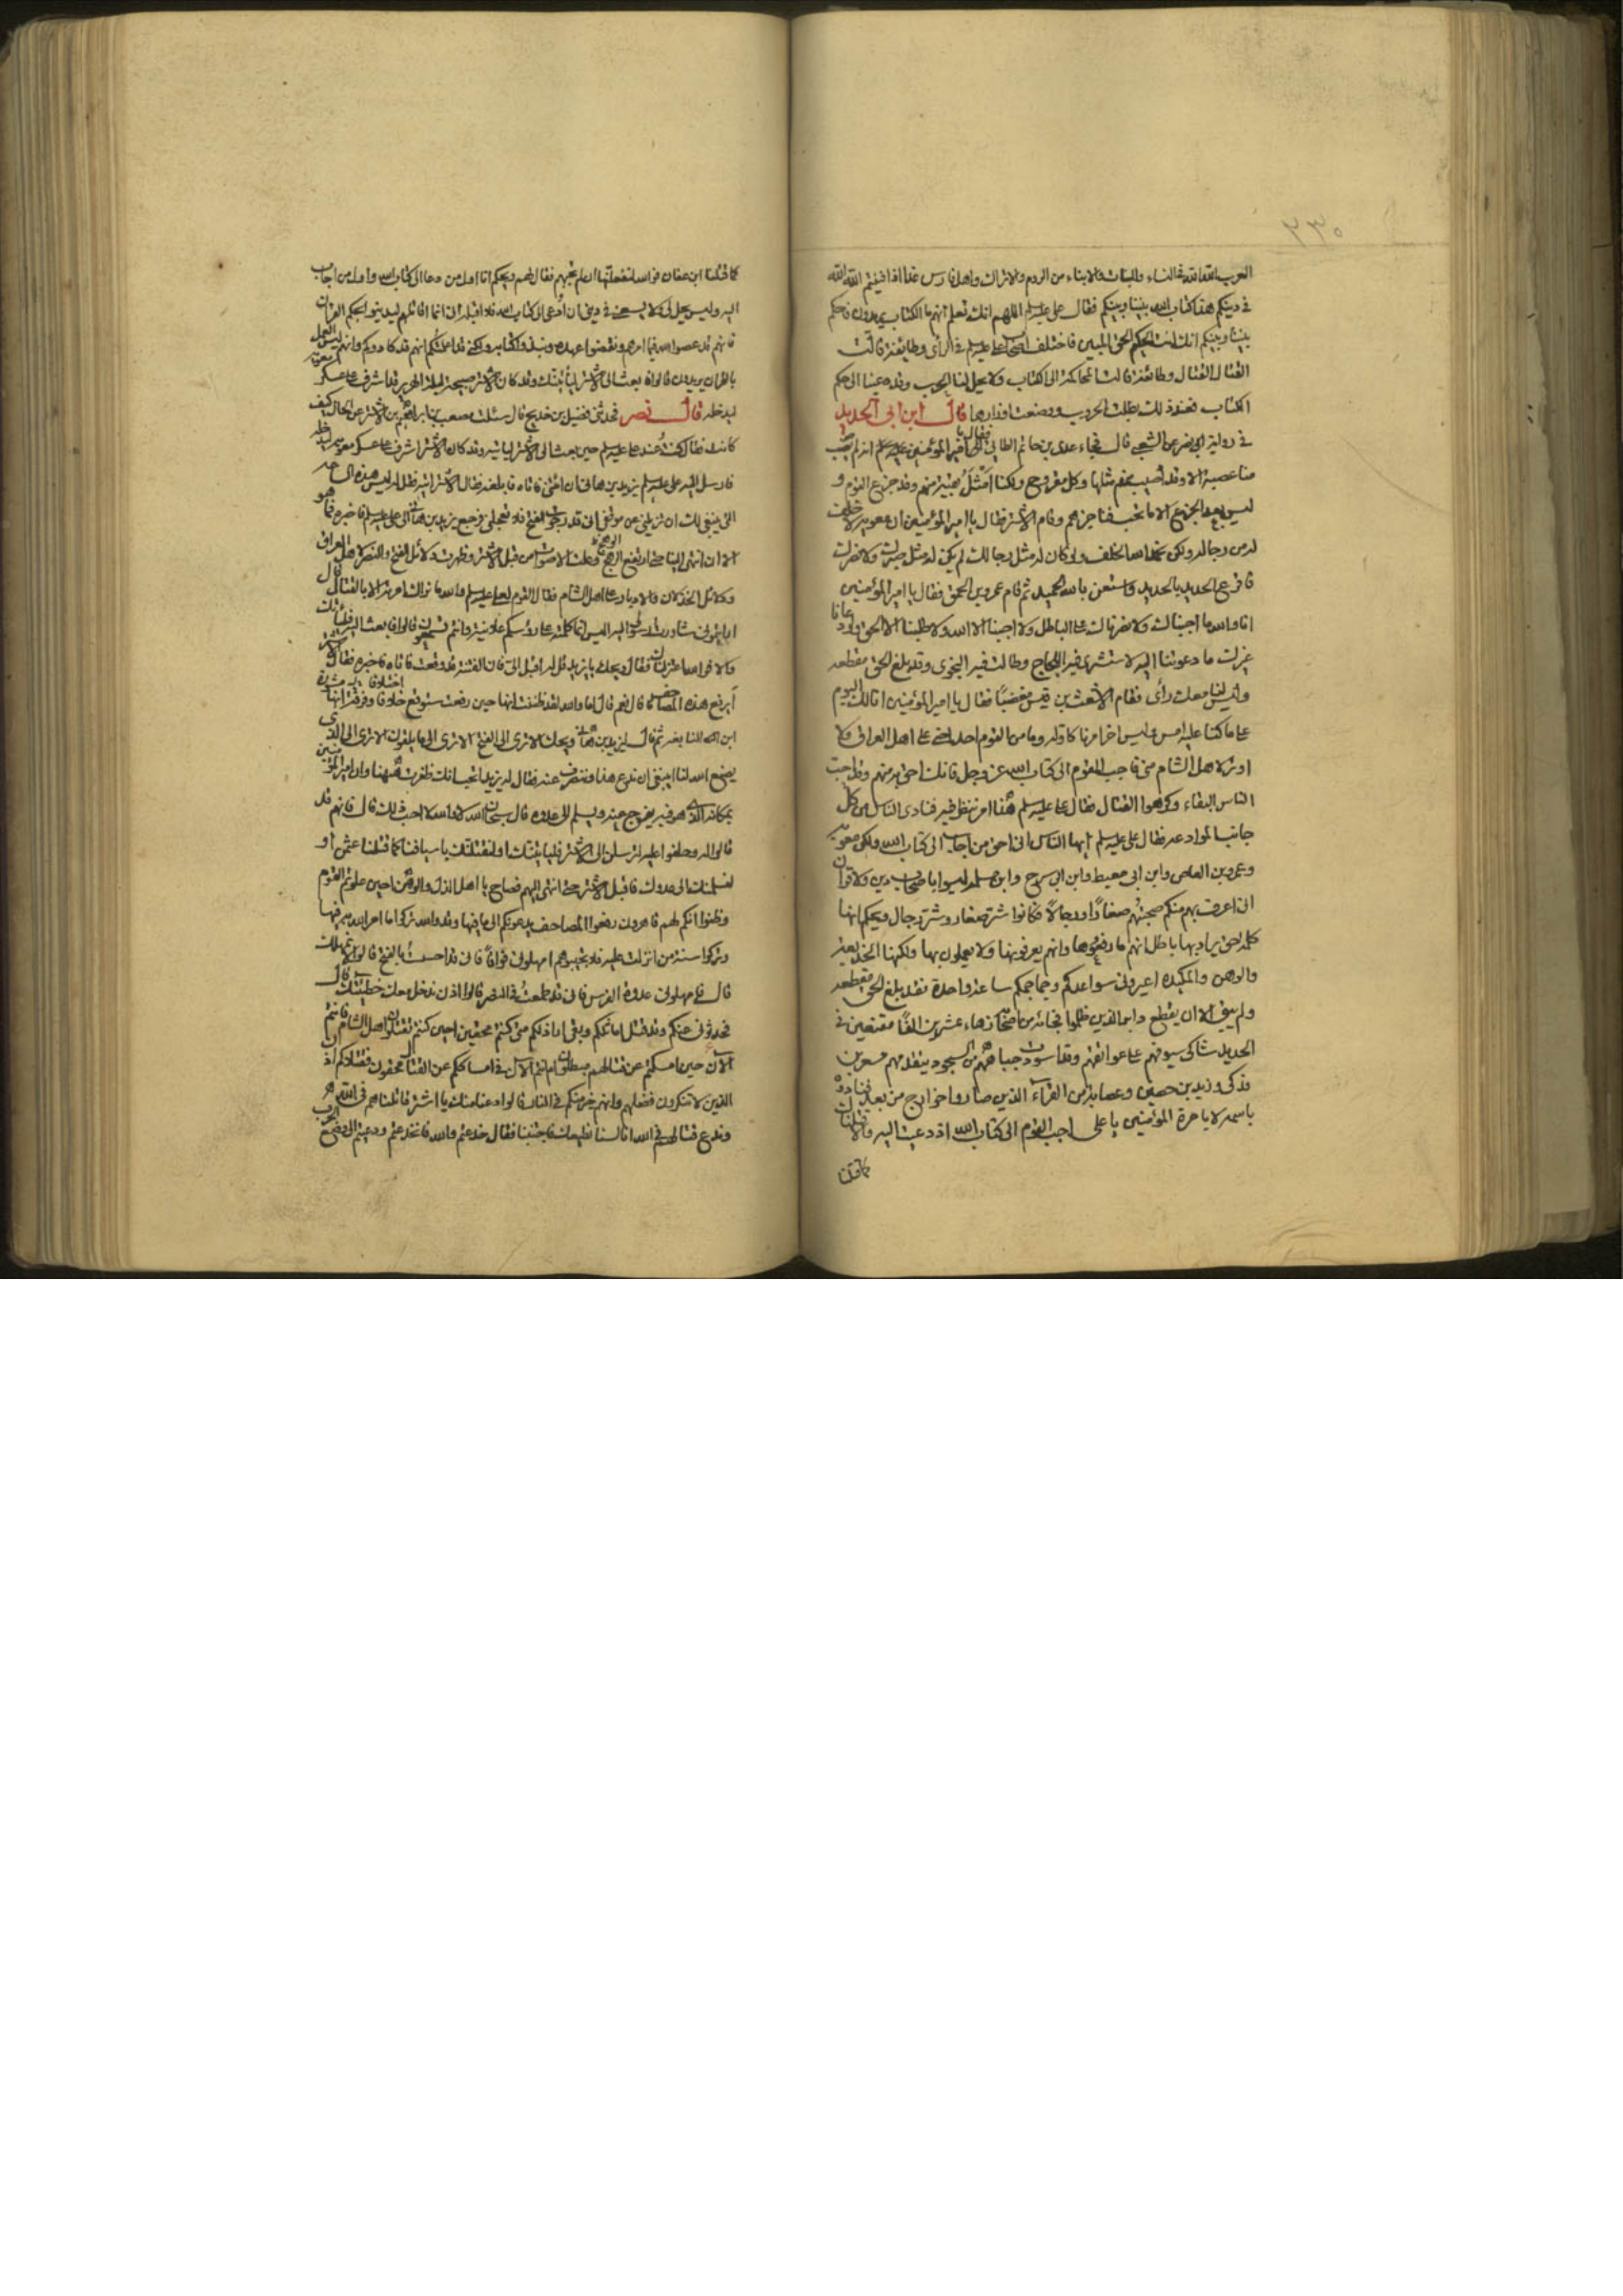 ٢٣٠
العرب الله الله في النساء والبنات والابناء من الروم والاتراك واهل فارس غدا اذا فنيتم الله الله
في دينكم هذا كتاب الله بيننا وبينكم فقال علي عليه السلم اللهم انك تعلم انهم ما الكتاب يريدون فاحكم
بيننا وبينهم انك انت الحكم الحق المبين فاختلف اصحاب علي عليه السلم في الرأى وطايفة قالت
القتال القتال وطائفة قالت المحاكمة الى الكتاب ولا يحل لنا الحرب وقد دعينا الى حكم
الكتاب فعند ذلك بطلت الحرب ووضعت اوزارها قال ابن ابى الحديد
في رواية نصر عن الشعبي قال فجاء عدى بن حاتم الطائي فقال يا امير المؤمنين انه لم يصب
منا عصبة الا وقد اصيب منهم مثلها وكل مقروح ولكنا امثل بقية منهم وقد جزع القوم و
ليس بعد الجزع الا ما تحب فناجزهم وقام الاشتر فقال يا امير المؤمنين ان معوية لا خلف
له من رجاله ولكن بحمد الله الخلف ولو كان له مثل رجالك لم يكن له مثل صبرك ولا نصرك
فاقرع الحديد بالحديد واستعن بالله الحميد ثم قام عمرو بن الحمق فقال يا امير المؤمنين
انا والله ما اجبناك ولا نصرناك على الباطل ولا اجبنا الا الله ولا طلبنا الا الحق ولو دعانا
غيرك ما دعوتنا اليه لاستشرى فيه اللجاج وطالت فيه النجوى وقد بلغ الحق مقطعه
وليس لنا معك رأى فقام الاشعث بن قيس مغضبًا فقال يا امير المؤمنين انا لك اليوم
على ما كنا عليه امس وليس اخر امرنا كاوله وما من القوم احد احنى على اهل العراق ولا
اوتر لاهل الشام مني فاجب القوم الى كتاب الله عز وجل فانك احق به منهم وقد احبت
الناس البقاء وكرهوا القتال فقال علي عليه السلم هذا امر ينظر فيه فنادى الناس من كل
جانب الموادعه فقال علي عليه السلم ايها الناس اني احق من اجاب الى كتاب الله ولكن معوية
وعمرو بن العاص وابن ابي معيط وابن ابي سرح وابن مسلمه ليسوا باصحاب دين ولا قران
اني اعرف بهم منكم صحبتهم صغارًا ورجالاً فكانوا شر صغار وشر رجال ويحكم انها
كلمة حق يراد بها باطل انهم ما رفعوها وانهم يعرفونها ولا يعملون بها ولكنها الخديعة
والوهن والمكيدة اعيروني سواعدكم وجماجمكم ساعة واحدة فقد بلغ الحق مقطعه
ولم يبق الا ان يقطع دابر الذين ظلموا فجائه من اصحابه زهاء عشرين الفًا مقنعين في
الحديد شاكي سيوفهم على عواتقهم وقد اسودت جباههم من السجود يتقدمهم مسعر بن
فدكي وزيد بن حصين وعصابة من القراء الذين صاروا خوارج من بعد فنادوه
باسمه لا يا مرة المؤمنين يا على اجب القوم الى كتاب الله اذ دعيت اليه والا قتلناك
كما قتلنا
كما قتلنا ابن عفان فوالله لنفعلنها ان لم تجبهم فقال لهم ويحكم انا اول من دعا الى كتاب الله واول من اجاب
اليه وليس يحل لي ولا يسعني في ديني ان ادعى الى كتاب الله فلا اقبله انى انما اقاتلهم ليدينوا بحكم القران
فانهم قد عصوا الله فيما امرهم ونقضوا عهده ونبذوا كتابه ولكني قد اعلمتكم انهم قد كادوكم وانهم ليس العمل
بالقران يريدون قالوا فابعث الى الاشتر ليأتينك وقد كان الاشتر صبيحة ليلة الهرير قد اشرف على عسكر معوية
ليدخله قال نصر فحدثني فضيل بن خديج قال سئلت مصعب بن ابراهيم بن الاشتر عن الحال كيف
كانت فقال كنت عند علي عليه السلم حين بعث الى الاشتر لياتيه وقد كان الاشتر اشرف على عسكر معوية ليدخله
فارسل اليه على عليه السلم يزيد بن هاني ان ائتني فاتاه فابلغه فقال الاشتر ائته فقل له ليس هذه الساعة
التي ينبغي لك ان تزيلني عن موقفي اني قد رجوت الفتح فلا تعجلني فرجع يزيد بن هاني الى علي عليه السلم فاخبره فما هو
الا ان انتهى الينا حتى ارتفع الرهج وعلت الاصوات من قبل الاشتر وظهرت دلائل الفتح والنصر لاهل العراق
ودلائل الخذلان والادبار على اهل الشام فقال القوم لعلي عليه السلم والله ما نراك امرته الا بالقتال قال
ارايتموني ساررت رسولي اليه اليس انما كلمته على رؤسكم علانية وانتم تسمعون قالوا فابعث اليه فليأتك
والا فوالله اعتزلناك فقال ويحك يا يزيد قل له اقبل الى فان الفتنة قد وقعت فاتاه فاخبره فقال الاشتر
أبرفع هذه المصاحف قال نعم قال اما والله لقد ظننت انها حين رفعت ستوقع اختلافا وفرقة انها مشورة
ابن النابغه ثم قال ليزيد بن هاني ويحك الا ترى الى الفتح الا ترى الى ما يلقون الا ترى الى الذى
يصنع الله لنا اينبغي ان ندع هذا وننصرف عنه فقال له يزيد اتحب انك ظفرت ههنا وان امير المؤمنين
بمكانه الذى هو فيه يفرج عنه ويسلم الى عدوه قال سبحان الله لا والله لا احب ذلك قال فانهم قد
قالوا له وحلفوا عليه لترسلن الى الاشتر فليأتينك او لنقتلنك باسيافنا كما قتلنا عثمن او
لنسلمنك الى عدوك فاقبل الاشتر حتى انتهى اليهم فصاح يا اهل الذل والوهن احين علوتم القوم
وظنوا انكم لهم قاهرون رفعوا المصاحف يدعونكم الى ما فيها وقد والله تركوا ما امر الله به فيها
وتركوا سنة من انزلت عليه فلا تجيبوهم امهلوني فواقًا فاني قد احسست بالفتح قالوا لا نمهلك
قال فامهلوني عدوة الفرس فاني قد طمعت في النصر قالوا اذن ندخل معك خطيئتك قال
فحدثوني عنكم وقد قتل اماثلكم وبقي اراذلكم متى كنتم محقين احين كنتم تقتلون اهل الشام فانتم
الان حين امسكتم عن قتالهم مبطلون ام انتم الان في امساككم عن القتال محقون فقتلاكم اذن
الذين لا تنكرون فضلهم وانهم خير منكم في النار قالوا دعنا منك يا اشتر قاتلناهم في الله
وندع قتالهم في الله انا لسنا نطيعك فاجتنبنا فقال خدعتم والله فانخدعتم ودعيتم الى وضع الحرب